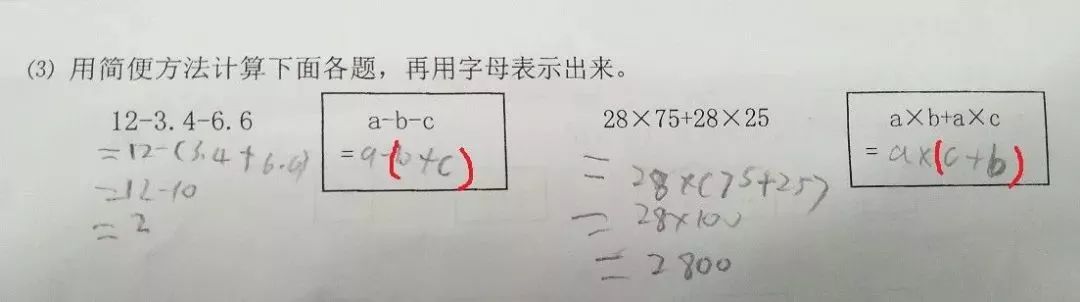 (3) 用简便方法计算下面各题，再用字母表示出来。
12-3.4-6.6
=12-(3.4+6.6)
=12-10
=2
a-b-c
=a-(b+c)
28×75+28×25
=28×(75+25)
=28×100
=2800
a×b+a×c
=a×(c+b)